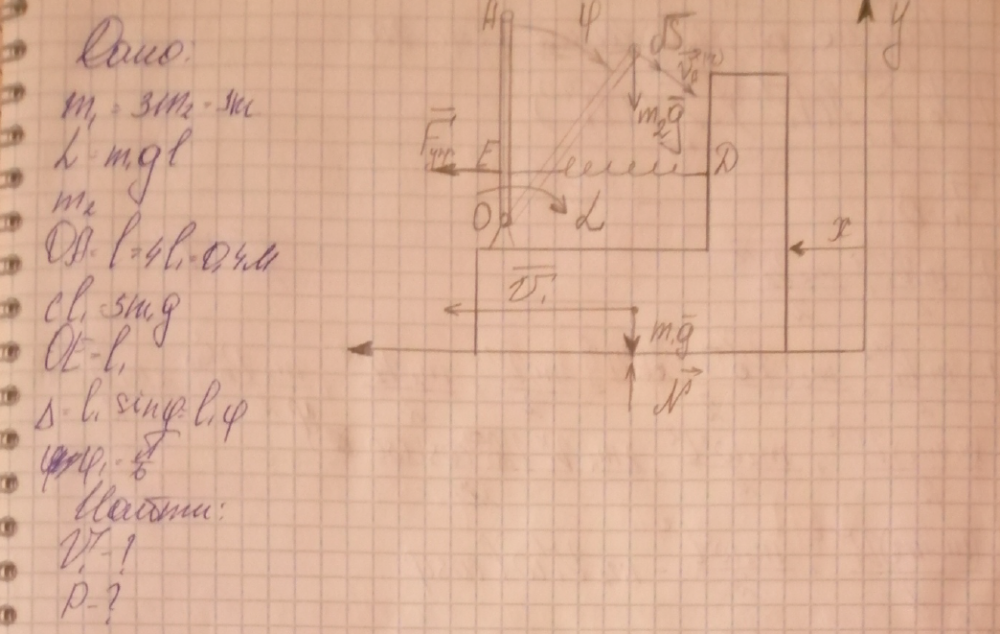 Дано:
m₁ = 3m₂ = 3m
L = m₁gl
m₂
OA = l = 4l₁ = 0,4м
cl₁ = 3m₁g
OE = l₁
Δ = l₁ sinφ = l₁φ
φ₁ = π/6
Найти:
V₁ - ?
P - ?
A
φ
y
m₂g
Fупр
E
D
O
L
x
V₁
m₁g
N